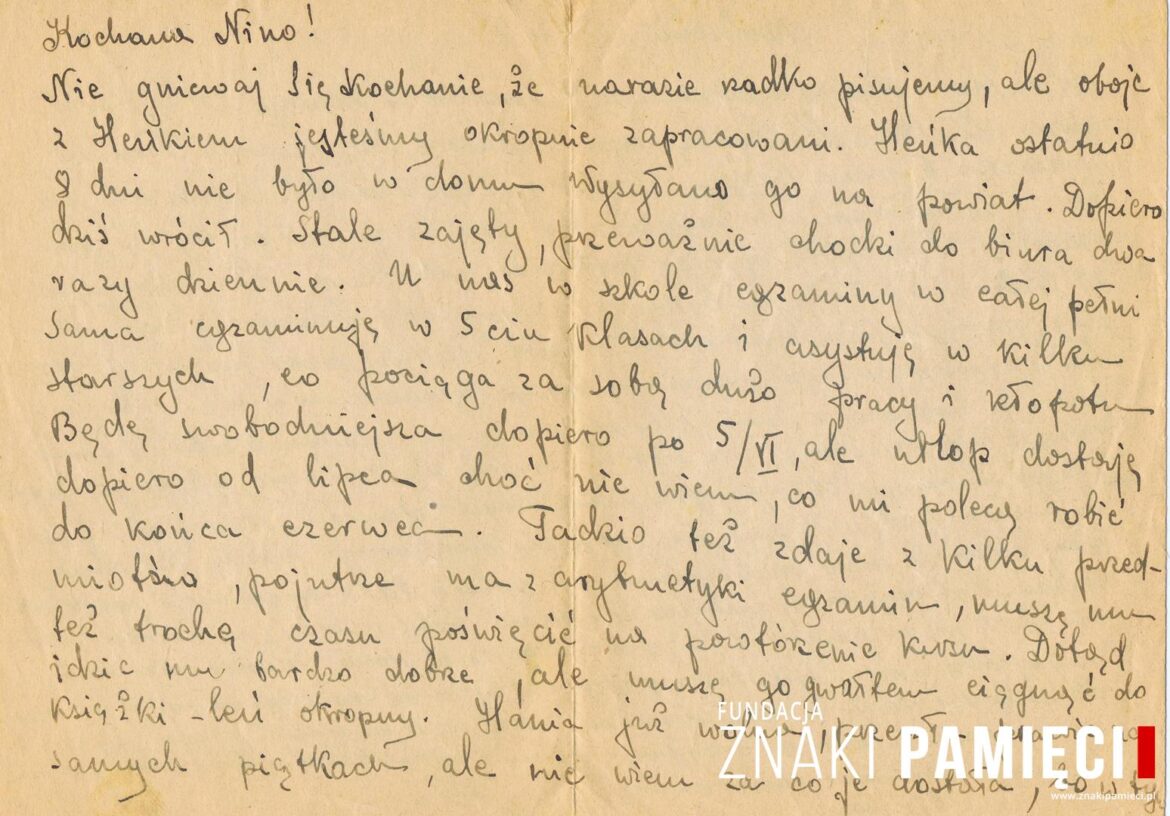 Kochana Nino!
Nie gniewaj się Kochanie, że narazie rzadko pisujemy, ale oboje
z Heńkiem jesteśmy okropnie zapracowani. Heńka ostatnio
8 dni nie było w domu Wysyłano go na powiat. Dopiero
dziś wrócił. Stale zajęty, przeważnie chodzi do biura dwa
razy dziennie. U nas w szkole egzaminy w całej pełni
Sama egzaminuję w 5 ciu klasach i asystuję w kilku
starszych, co pociąga za sobą dużo pracy i kłopotu
Będę swobodniejsza dopiero po 5/VI, ale urlop dostaję
dopiero od lipca choć nie wiem, co mi polecą robić
do końca czerwca. Tadzio też zdaje z kilku przed-
miotów, pojutrze ma z arytmetyki egzamin, muszę mu
też trochę czasu poświęcić na powtórzenie kursu. Dotąd
idzie mu bardzo dobrze, ale muszę go gwałtem ciągnąć do
książki - leń okropny. Hania już wolna, przeszła
samych piątkach, ale nie wiem za co je dostała, bo w
FUNDACJA
ZNAKI PAMIĘCI
www.znakipamieci.pl